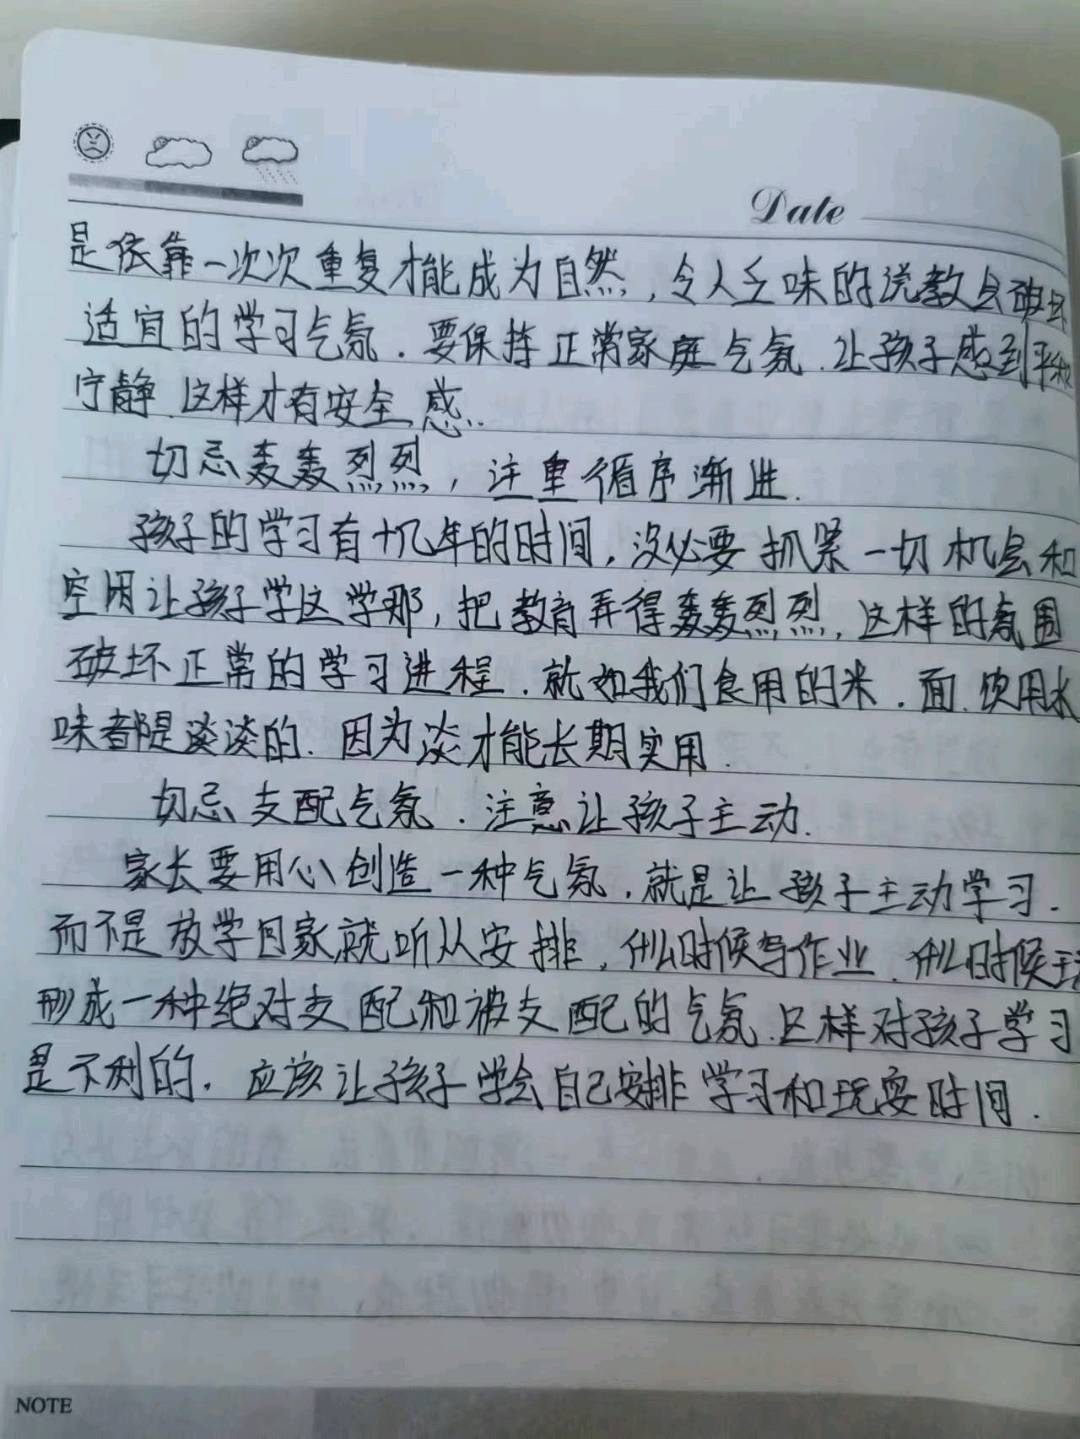 Date
是依靠一次次重复才能成为自然,令人乏味的说教会破坏
适宜的学习气氛.要保持正常家庭气氛.让孩子感到平和
宁静.这样才有安全感.
切忌轰轰烈烈,注重循序渐进.
孩子的学习有十几年的时间,没必要抓紧一切机会和
空闲让孩子学这学那,把教育弄得轰轰烈烈,这样的氛围
破坏正常的学习进程.就如我们食用的米.面.饮用水
味都是淡淡的.因为淡才能长期实用.
切忌支配气氛.注意让孩子主动.
家长要用心创造一种气氛,就是让孩子主动学习.
而不是放学回家就听从安排,什么时候写作业.什么时候
形成一种绝对支配和被支配的气氛.这样对孩子学习
是不利的.应该让孩子学会自己安排学习和玩耍时间.
NOTE